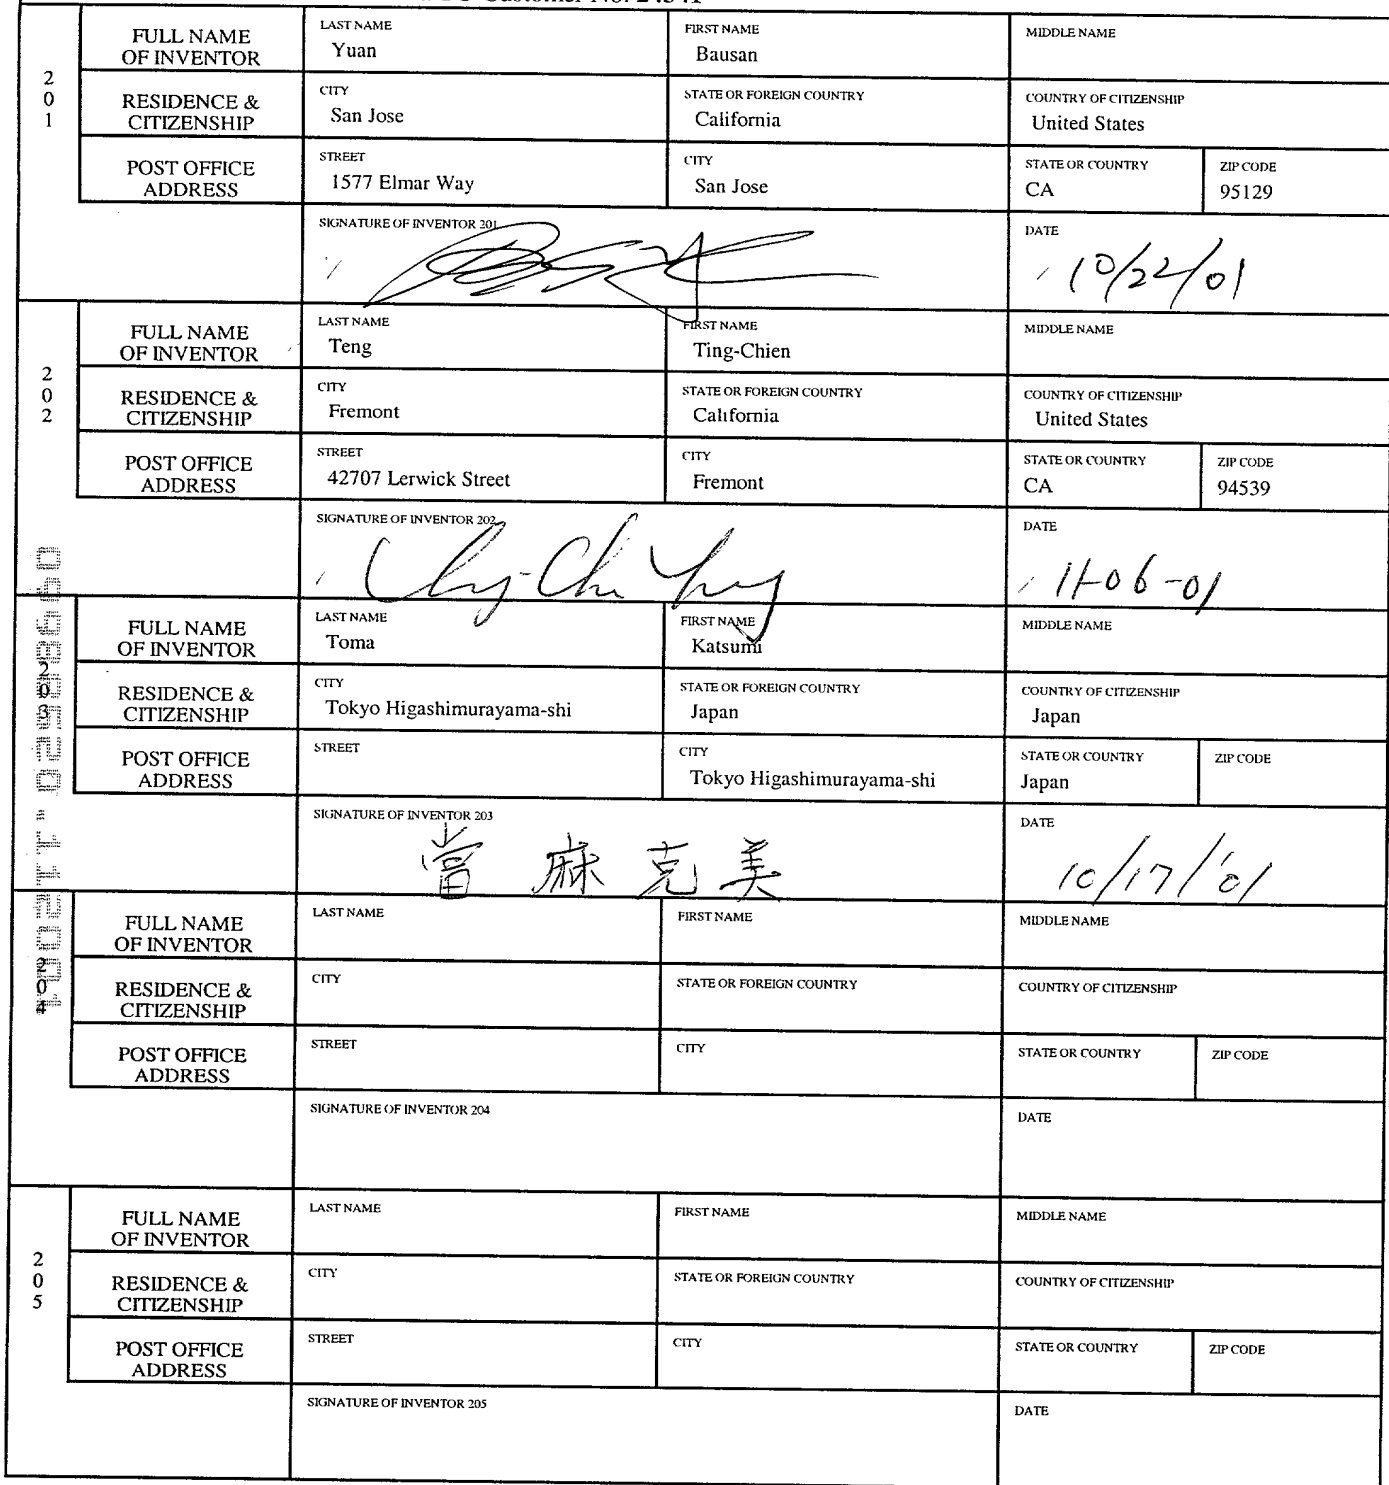 Customer No. 24341
201
FULL NAME OF INVENTOR
LAST NAME Yuan
FIRST NAME Bausan
MIDDLE NAME
RESIDENCE & CITIZENSHIP
CITY San Jose
STATE OR FOREIGN COUNTRY California
COUNTRY OF CITIZENSHIP United States
POST OFFICE ADDRESS
STREET 1577 Elmar Way
CITY San Jose
STATE OR COUNTRY CA
ZIP CODE 95129
SIGNATURE OF INVENTOR 201
DATE 10/22/01
202
FULL NAME OF INVENTOR
LAST NAME Teng
FIRST NAME Ting-Chien
MIDDLE NAME
RESIDENCE & CITIZENSHIP
CITY Fremont
STATE OR FOREIGN COUNTRY California
COUNTRY OF CITIZENSHIP United States
POST OFFICE ADDRESS
STREET 42707 Lerwick Street
CITY Fremont
STATE OR COUNTRY CA
ZIP CODE 94539
SIGNATURE OF INVENTOR 202
DATE 11-06-01
203
FULL NAME OF INVENTOR
LAST NAME Toma
FIRST NAME Katsumi
MIDDLE NAME
RESIDENCE & CITIZENSHIP
CITY Tokyo Higashimurayama-shi
STATE OR FOREIGN COUNTRY Japan
COUNTRY OF CITIZENSHIP Japan
POST OFFICE ADDRESS
STREET
CITY Tokyo Higashimurayama-shi
STATE OR COUNTRY Japan
ZIP CODE
SIGNATURE OF INVENTOR 203 當麻克美
DATE 10/17/'01
204
FULL NAME OF INVENTOR
LAST NAME
FIRST NAME
MIDDLE NAME
RESIDENCE & CITIZENSHIP
CITY
STATE OR FOREIGN COUNTRY
COUNTRY OF CITIZENSHIP
POST OFFICE ADDRESS
STREET
CITY
STATE OR COUNTRY
ZIP CODE
SIGNATURE OF INVENTOR 204
DATE
205
FULL NAME OF INVENTOR
LAST NAME
FIRST NAME
MIDDLE NAME
RESIDENCE & CITIZENSHIP
CITY
STATE OR FOREIGN COUNTRY
COUNTRY OF CITIZENSHIP
POST OFFICE ADDRESS
STREET
CITY
STATE OR COUNTRY
ZIP CODE
SIGNATURE OF INVENTOR 205
DATE